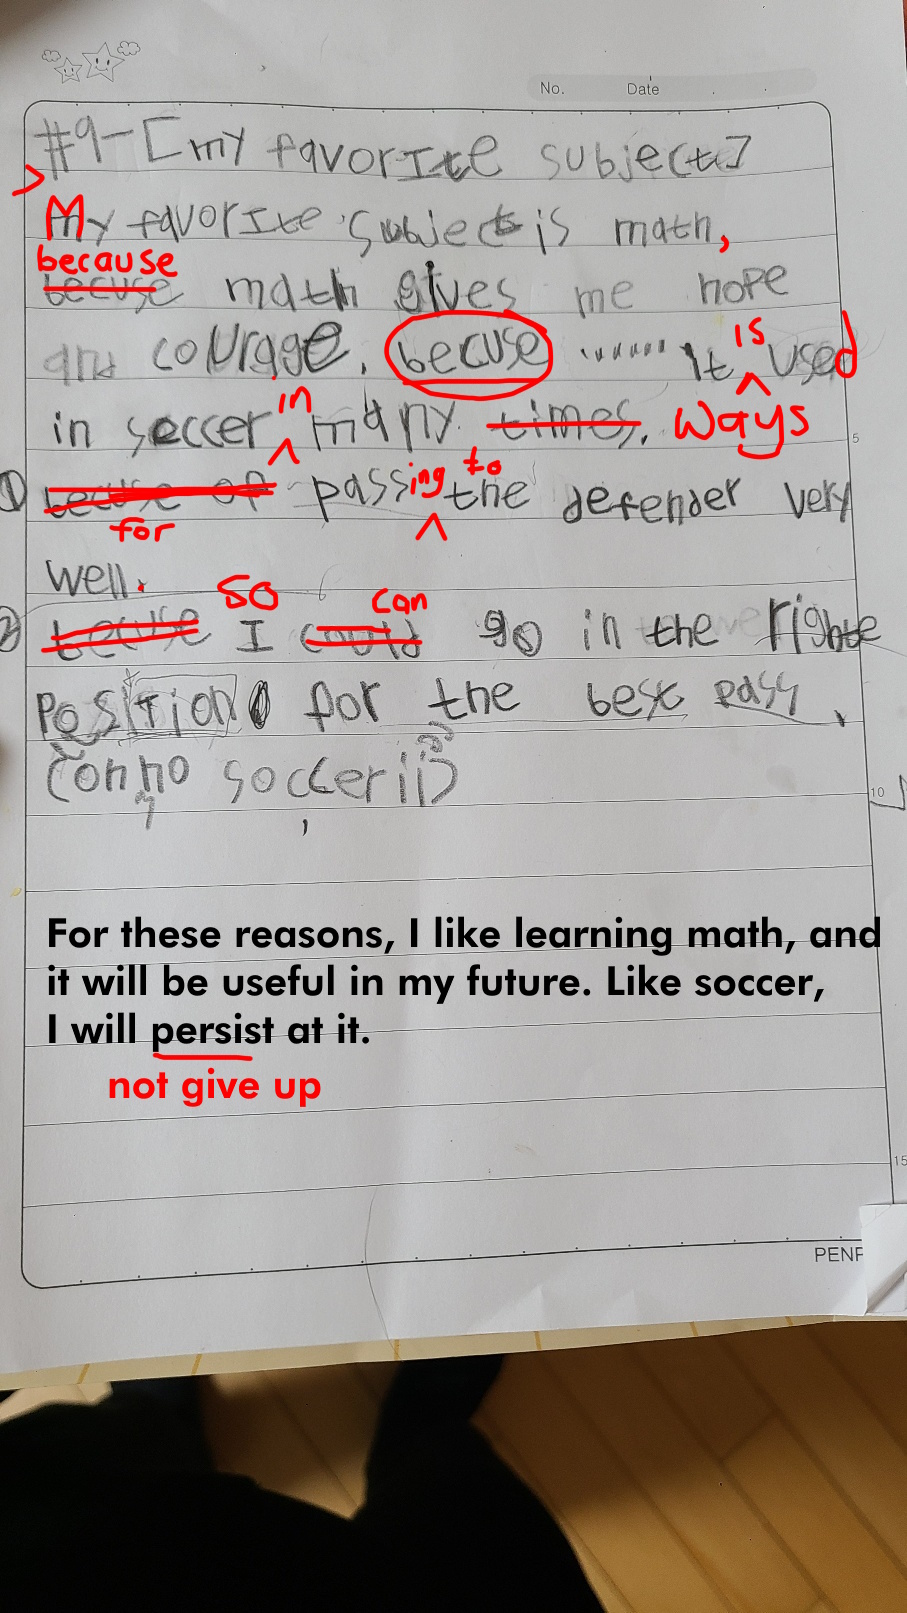 No. Date
#9-[my favorite subject]
>
My favorite subject is math,
because
becuse math gives me hope
and courage. becuse ....... It is used
in soccer in many times. ways
① becuse of passing to the defender very
for
well.
so can
② becuse I could go in the right
position for the best pass,
soccer
10
5
For these reasons, I like learning math, and
it will be useful in my future. Like soccer,
I will persist at it.
not give up
15
PENF